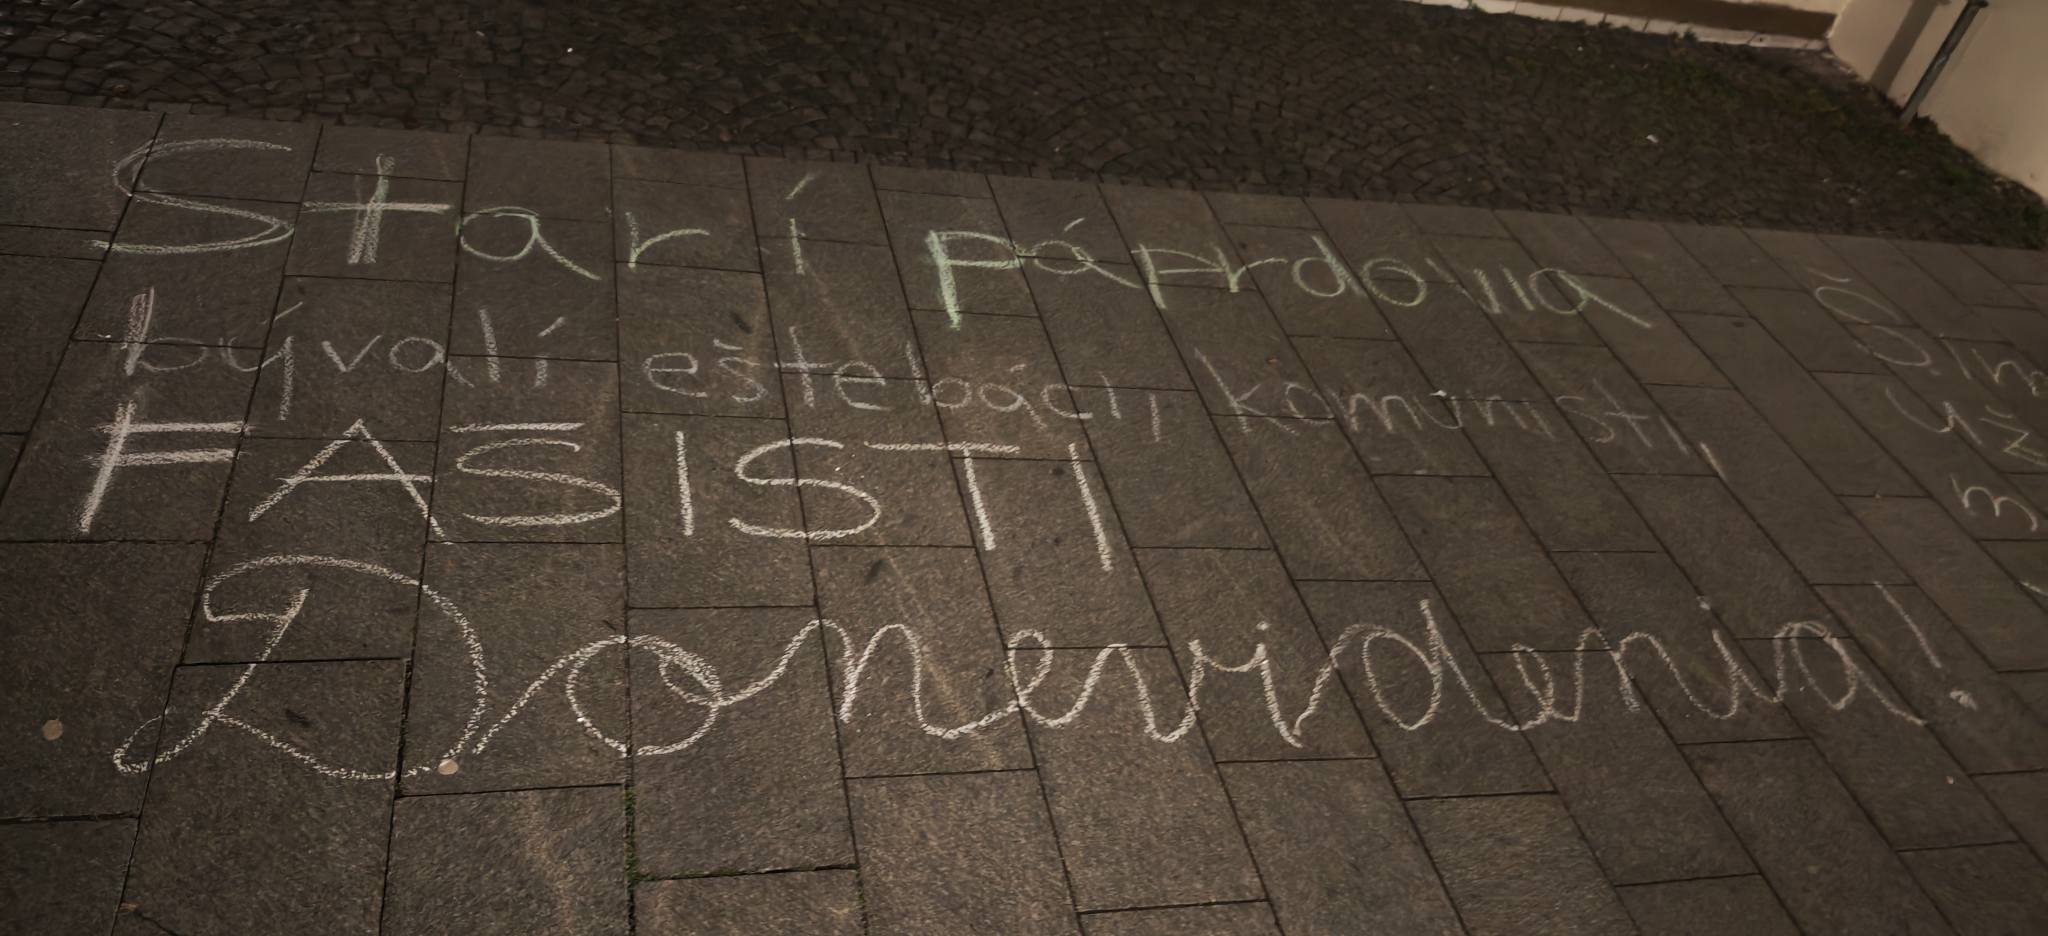 Starí páprdovia
bývalí eštebáci, komunisti,
FAŠISTI
Donevidenia!